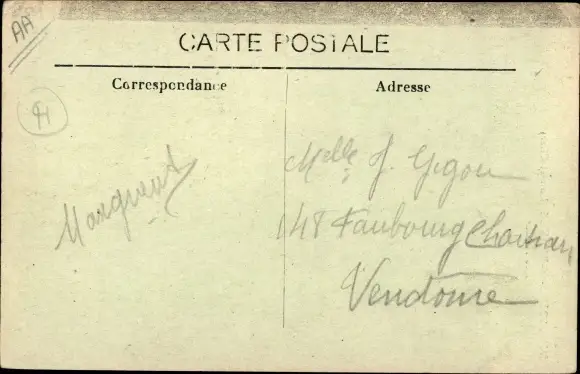 AA
CARTE POSTALE
Correspondance
Adresse
Melle J. Gigou
148 Faubourg Chartrain
Vendôme